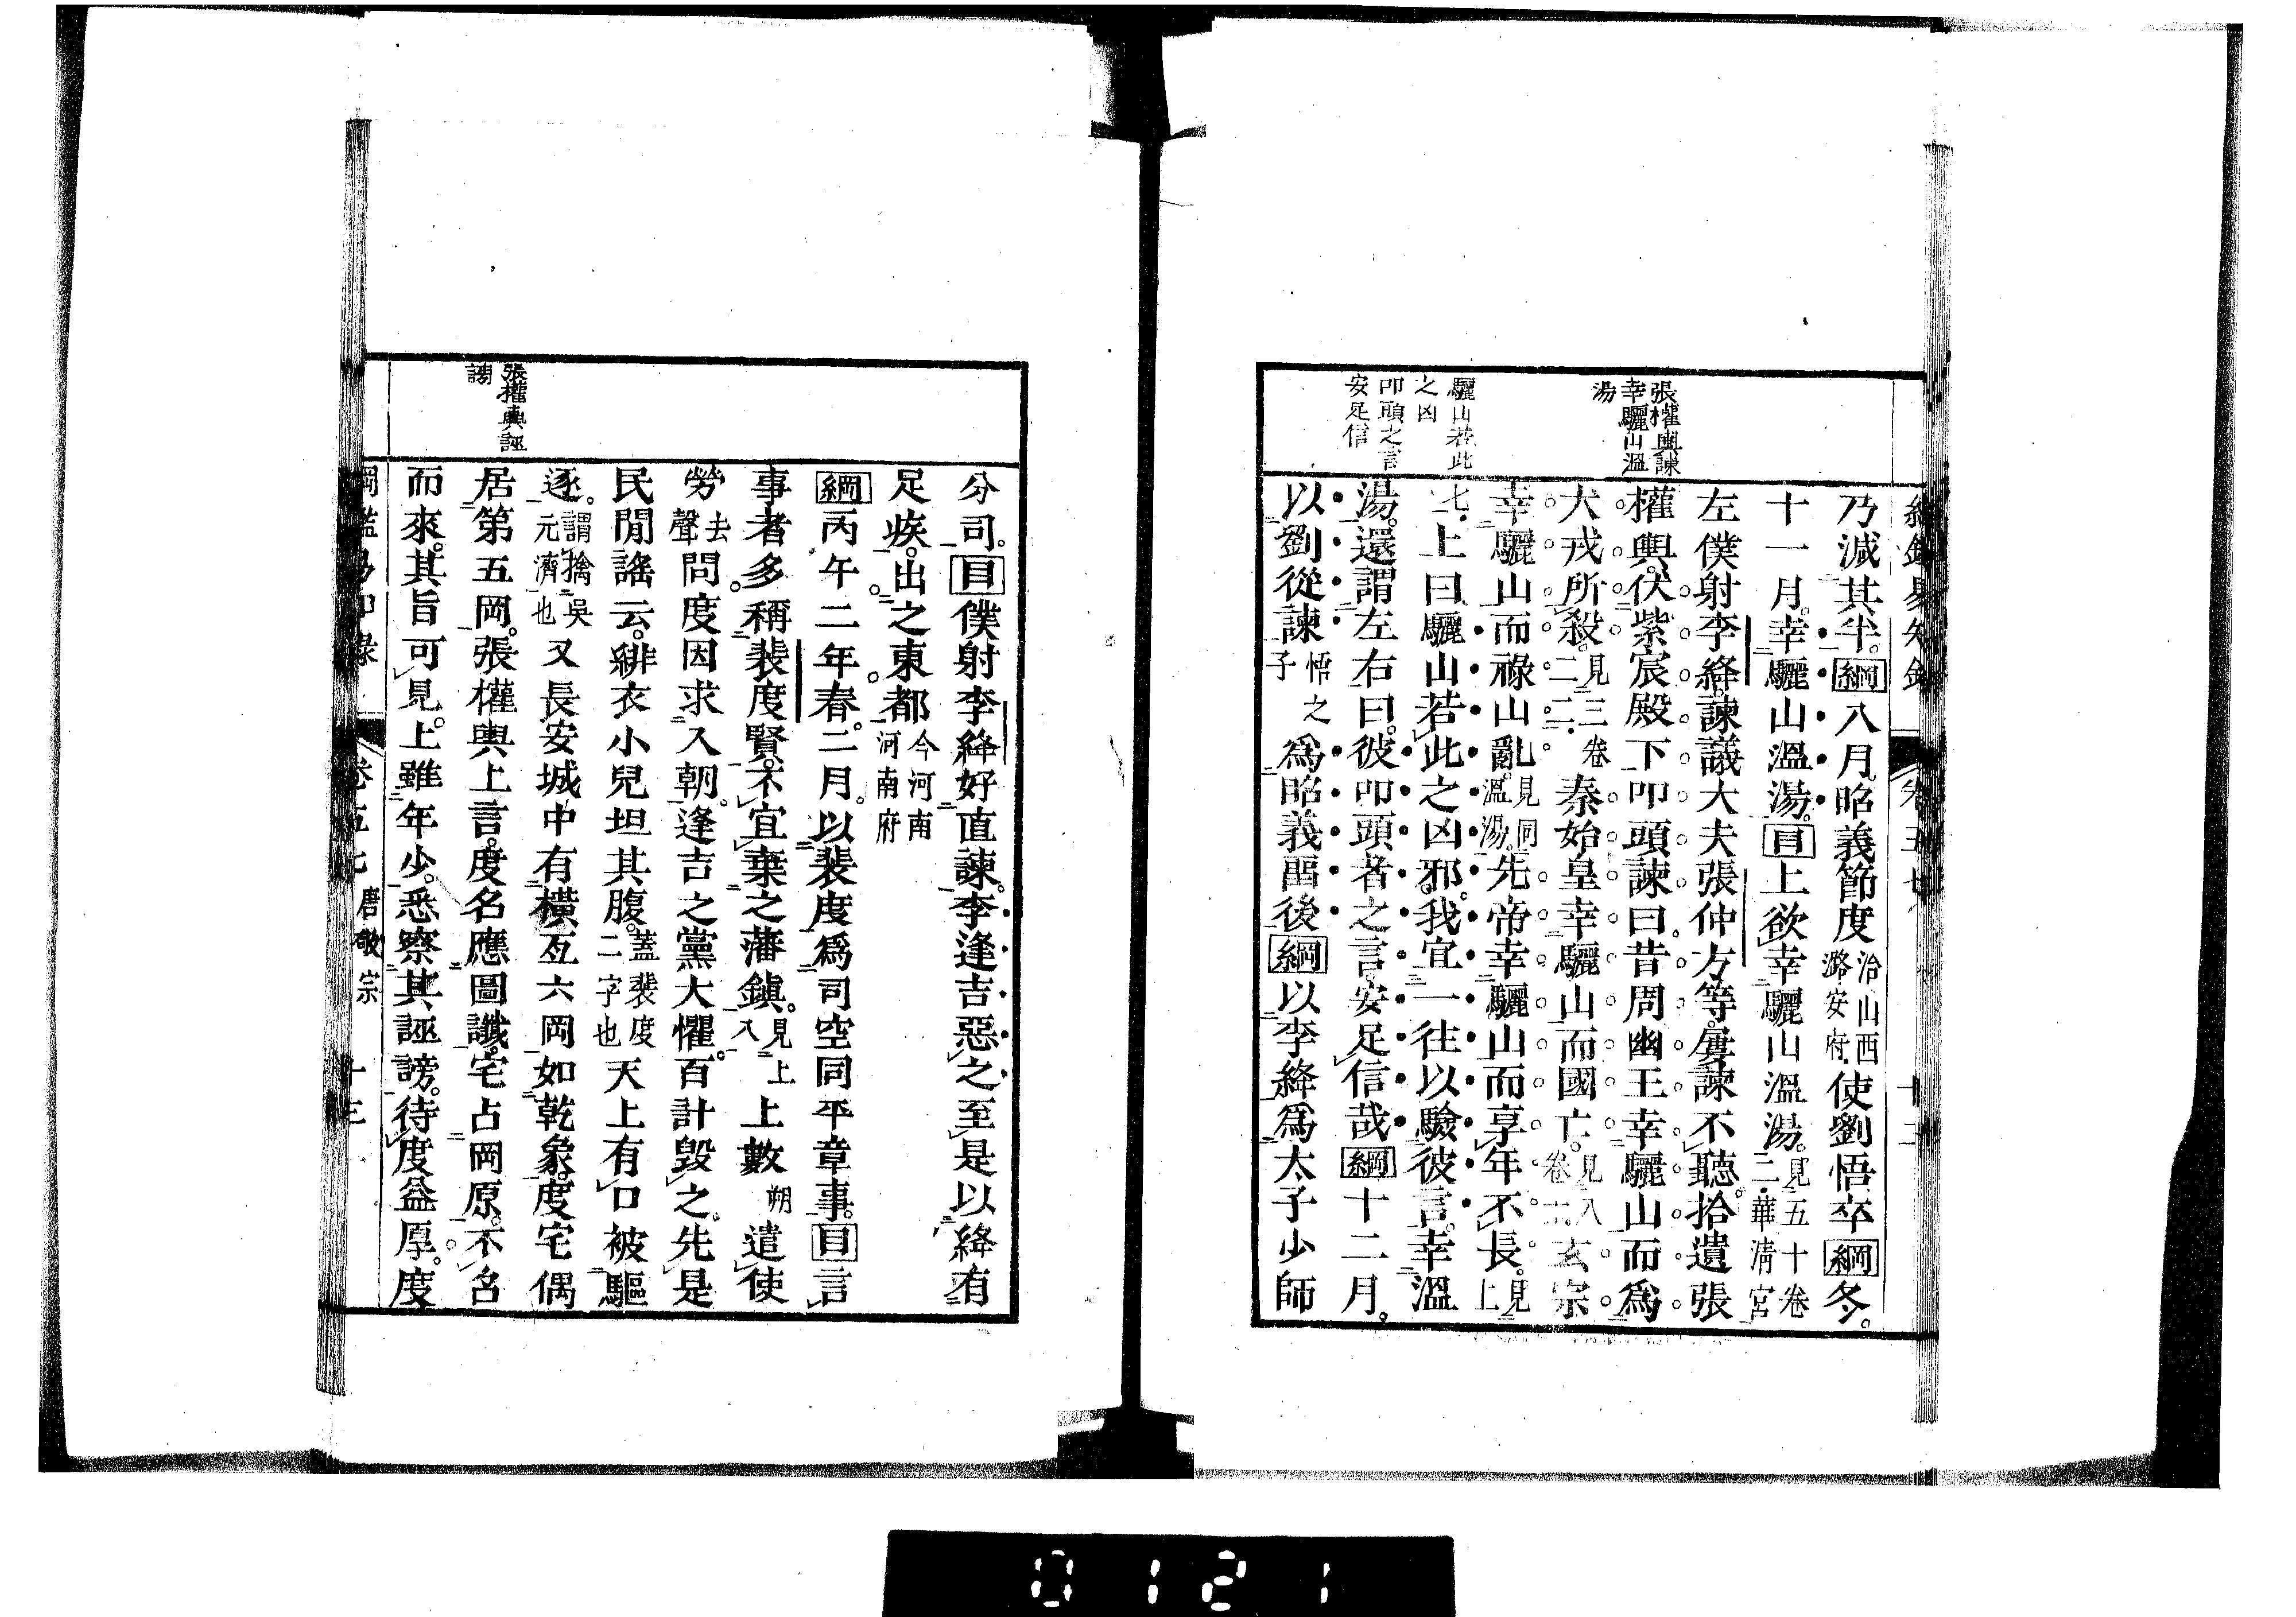 張權輿諫
幸驪山溫
湯
驪山若此
之凶
叩頭之言
安足信
乃減其半。綱八月。昭義節度治山西潞安府使劉悟卒綱冬。
十一月。幸驪山溫湯。目上欲幸驪山溫湯。見五十卷二華淸宮
左僕射李絳。諫議大夫張仲方等。屢諫不聽。拾遺張
權輿。伏紫宸殿下。叩頭諫曰。昔周幽王幸驪山而爲
犬戎所殺。見三卷二二秦始皇幸驪山而國亡。見八卷玄宗
幸驪山而祿山亂。見同溫湯。先帝幸驪山而享年不長。見上
七上曰。驪山若此之凶邪。我宜一往以驗彼言。幸溫
湯。還謂左右曰。彼叩頭者之言。安足信哉綱十二月。
以劉從諫悟之子爲昭義畱後綱以李絳爲太子少師
張權輿誣
謗
分司。目僕射李絳好直諫。李逢吉惡之。至是以絳有
足疾。出之東都今河南河南府
綱丙午二年春。二月。以裴度爲司空同平章事。目言
事者多稱裴度賢。不宜棄之藩鎭。見上八上數朔遣使
勞去聲問。度因求入朝。逢吉之黨大懼。百計毀之。先是
民閒謠云。緋衣小兒坦其腹。蓋裴度二字也天上有口被驅
逐。謂擒吳元濟也又長安城中有橫亙六岡如乾象。度宅偶
居第五岡。張權輿上言。度名應圖讖。宅占岡原。不召
而來。其旨可見。上雖年少。悉察其誣謗。待度益厚。度
綱鑑易知錄 卷五七 唐敬宗 十三